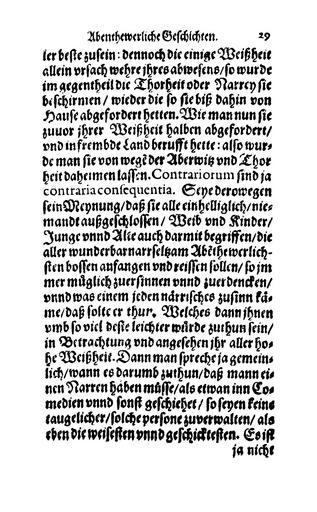 Abenthewerliche Geschichten. 29
ler beste zusein: dennoch die einige Weißheit
allein vrsach wehre jhres abwesens/ so wurde
im gegentheil die Thorheit oder Narrey sie
beschirmen/ wieder die so sie biß dahin von
Hause abgefordert hetten. Wie man nun sie
zuuor jhrer Weißheit halben abgefordert/
vnd in frembde Land berufft hette: also wur-
de man sie von wegẽ der Aberwitz vnd Thor
heit daheimen lassen. Contrariorum sind ja
contraria consequentia. Seye derowegen
sein Meynung/ daß sie alle einhelliglich/ nie-
mandt außgeschlossen/ Weib vnd Kinder/
Junge vnnd Alte auch darmit begriffen/ die
aller wunderbarnarrselgam Abẽthewerlich-
sten bossen anfangen vnd reissen sollen/ so jm
mer müglich zuersinnen vnnd zuerdencken/
vnnd was einem jeden närrisches zusinn kä-
me/ daß solte er thur. Welches dann jhnen
vmb so viel deste leichter würde zuthun sein/
in Betrachtung vnd angesehen jhr aller ho-
he Weißheit. Dann man spreche ja gemein-
lich/ wann es darumb zuthun/ daß mann ei-
nen Narren haben müsse/ als etwan inn Co-
medien vnnd sonst geschiehet/ so seyen keine
taugelicher/ solche persone zuverwalten/ als
eben die weisesten vnnd geschicktesten. Es ist
ja nicht